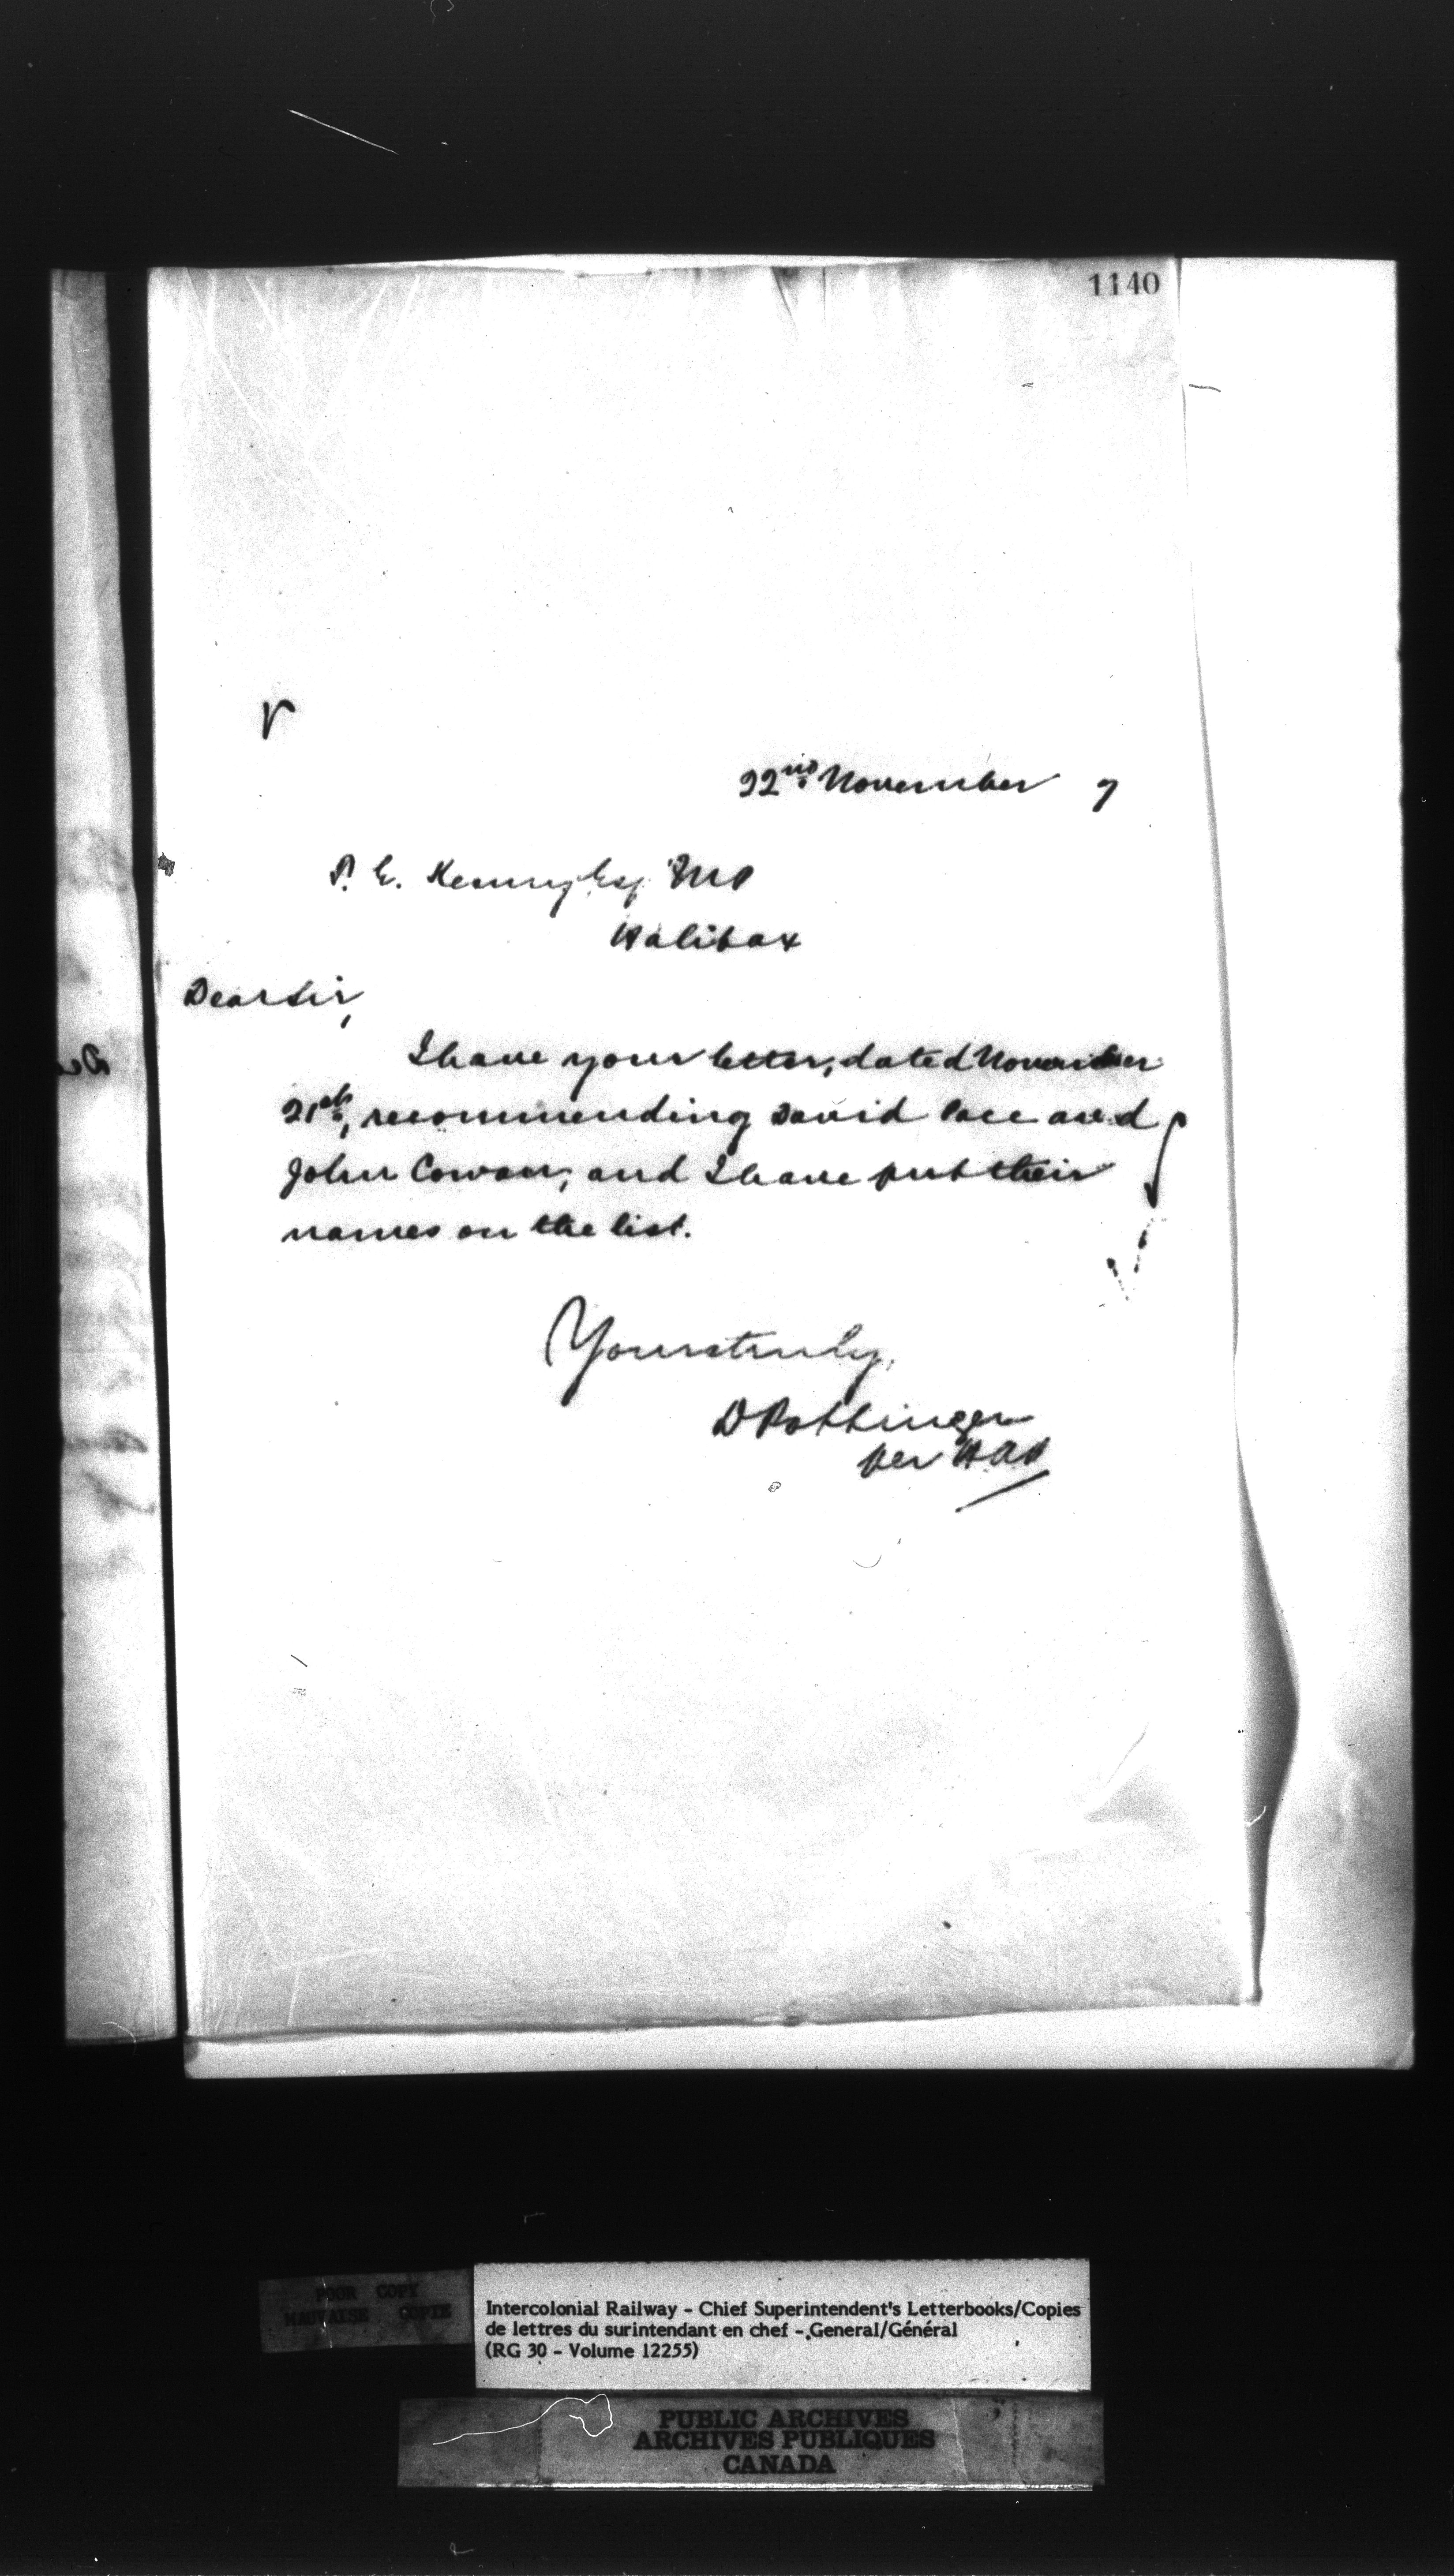 1140
22nd November 7
T. E. Kenny Esq MP
Halifax
Dear Sir,
I have your letter, dated November
21st, recommending David Pace and
John Cowan, and I have put their
names on the list.
Yours truly,
D Pottinger
per
POOR COPY
MAUVAISE COPIE
Intercolonial Railway - Chief Superintendent's Letterbooks/Copies
de lettres du surintendant en chef - General/Général
(RG 30 - Volume 12255)
PUBLIC ARCHIVES
ARCHIVES PUBLIQUES
CANADA